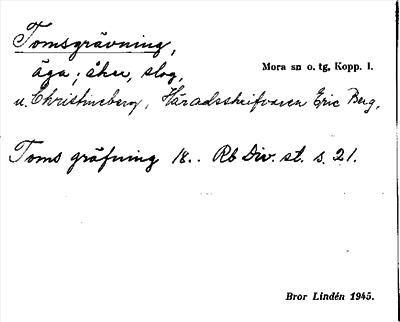 Tomsgrävning,
äga; åker, slog,
Mora sn o. tg, Kopp. l.
u. Christineberg, Häradsskrifvaren Eric Berg.
Toms gräfning 18.. Rb Div. st. s. 21.
Bror Lindén 1945.